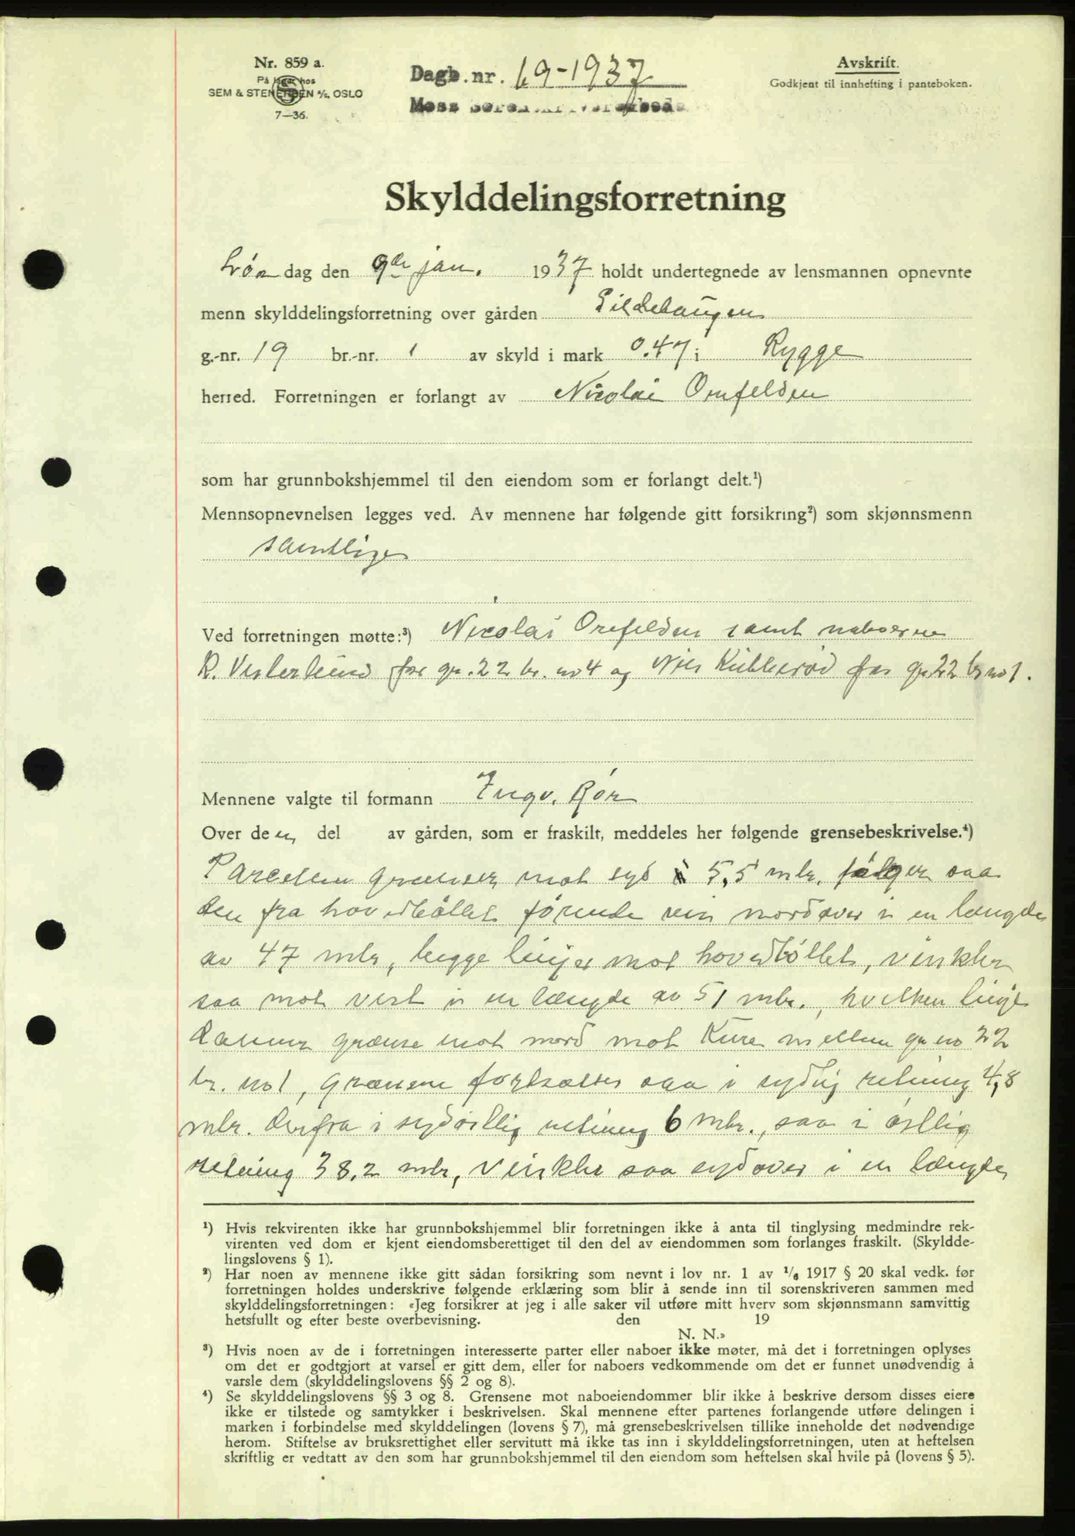 Nr. 859 a.
På lager hos
SEM & STENERSEN A/S, OSLO
7—36.
Dagb.nr. 69-1937
Moss sorenskriverembede
Avskrift.
Godkjent til innhefting i panteboken.
Skylddelingsforretning
Lør dag den 9de jan. 1937 holdt undertegnede av lensmannen opnevnte
menn skylddelingsforretning over gården Gildehaugen
g.-nr. 19 br.-nr. 1 av skyld i mark 0.47 i Rygge
herred. Forretningen er forlangt av Nicolai Orefelden
som har grunnbokshjemmel til den eiendom som er forlangt delt.¹)
Mennsopnevnelsen legges ved. Av mennene har følgende gitt forsikring²) som skjønnsmenn
samtlige
Ved forretningen møtte:³) Nicolai Orefelden samt naboerne
R. Vesterlund for gr. 22 br. no 4 og Nils Kubberød for gr 22 b no 1.
Mennene valgte til formann Ingv. Rør
Over den del av gården, som er fraskilt, meddeles her følgende grensebeskrivelse.⁴)
Parcellen grænser mot syd 5,5 mtr. følger saa
den fra hovedbøllet førende vei nordover i en længde
av 47 mtr, begge linjer mot hovedbøllet, vinkler
saa mot vest i en længde av 51 mtr., hvilken linje
danner grænse mot nord mot Kure mellem gr no 22
br. no 1, grænsen fortsætter saa i sydlig retning 4,8
mtr. derfra i sydøstlig retning 6 mtr., saa i østlig
retning 38,2 mtr, vinkler saa sydover i en længde
¹) Hvis rekvirenten ikke har grunnbokshjemmel blir forretningen ikke å anta til tinglysing medmindre rek-
virenten ved dom er kjent eiendomsberettiget til den del av eiendommen som forlanges fraskilt. (Skyldde-
lingslovens § 1).
²) Har noen av mennene ikke gitt sådan forsikring som nevnt i lov nr. 1 av 1/6 1917 § 20 skal vedk. før
forretningen holdes underskrive følgende erklæring som blir å sende inn til sorenskriveren sammen med
skylddelingsforretningen: «Jeg forsikrer at jeg i alle saker vil utføre mitt hverv som skjønnsmann samvittig
hetsfullt og efter beste overbevisning. den 19
N. N.»
³) Hvis noen av de i forretningen interesserte parter eller naboer ikke møter, må det i forretningen oplyses
om det er godtgjort at varsel er gitt dem, eller for naboers vedkommende om det er funnet unødvendig å
varsle dem (skylddelingslovens §§ 2 og 8).
⁴) Se skylddelingslovens §§ 3 og 8. Grensene mot naboeiendommer blir ikke å beskrive dersom disses eiere
ikke er tilstede og samtykker i beskrivelsen. Skal mennene efter partenes forlangende utføre delingen i
marken i forbindelse med skylddelingen (lovens § 7), må grensebeskrivelsen tillike inneholde det nødvendige
herom. Stiftelse av bruksrettighet eller servitutt må ikke tas inn i skylddelingsforretningen, uten at heftelsen
skriftlig er vedtatt av den som har grunnbokshjemmel til den eiendom som heftelsen skal hvile på (lovens § 5).